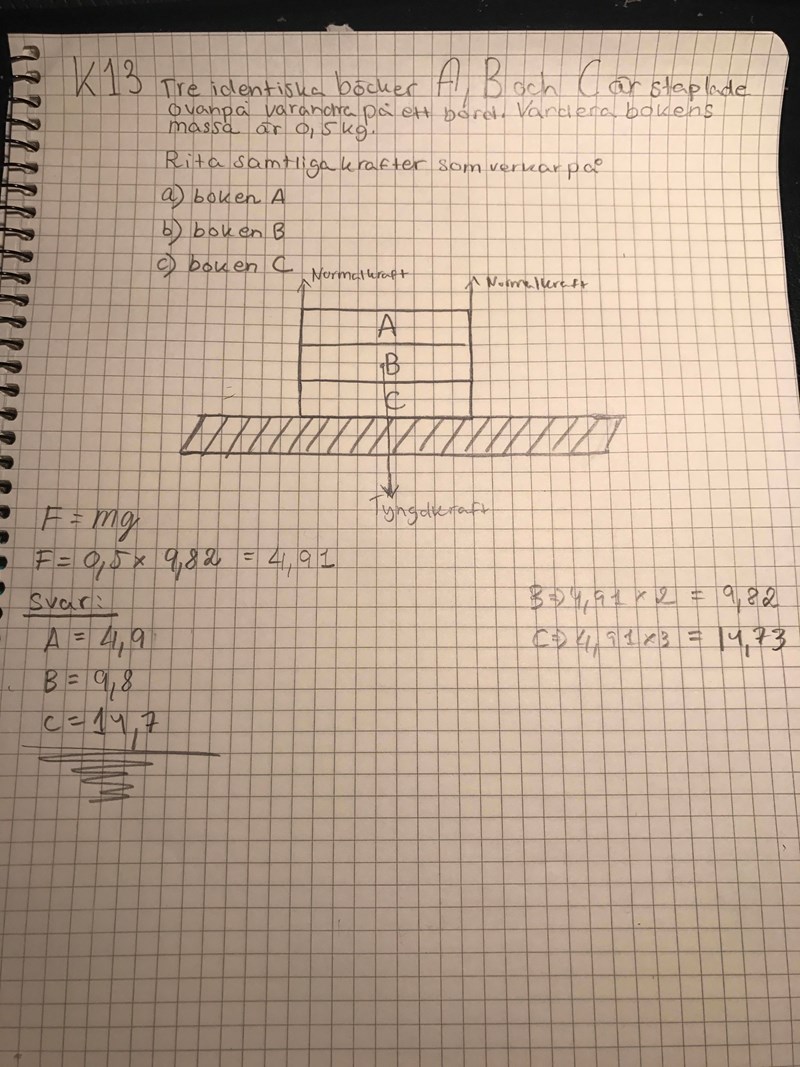 K13 Tre identiska böcker A, B och C är staplade
ovanpå varandra på ett bord. Vardera bokens
massa är 0,5 kg.
Rita samtliga krafter som verkar på
a) boken A
b) boken B
c) boken C
Normalkraft
Normalkraft
A
B
C
Tyngdkraft
F = mg
F = 0,5 × 9,82 = 4,91
Svar:
A = 4,9
B = 9,8
C = 14,7
B ⇒ 4,91 × 2 = 9,82
C ⇒ 4,91 × 3 = 14,73